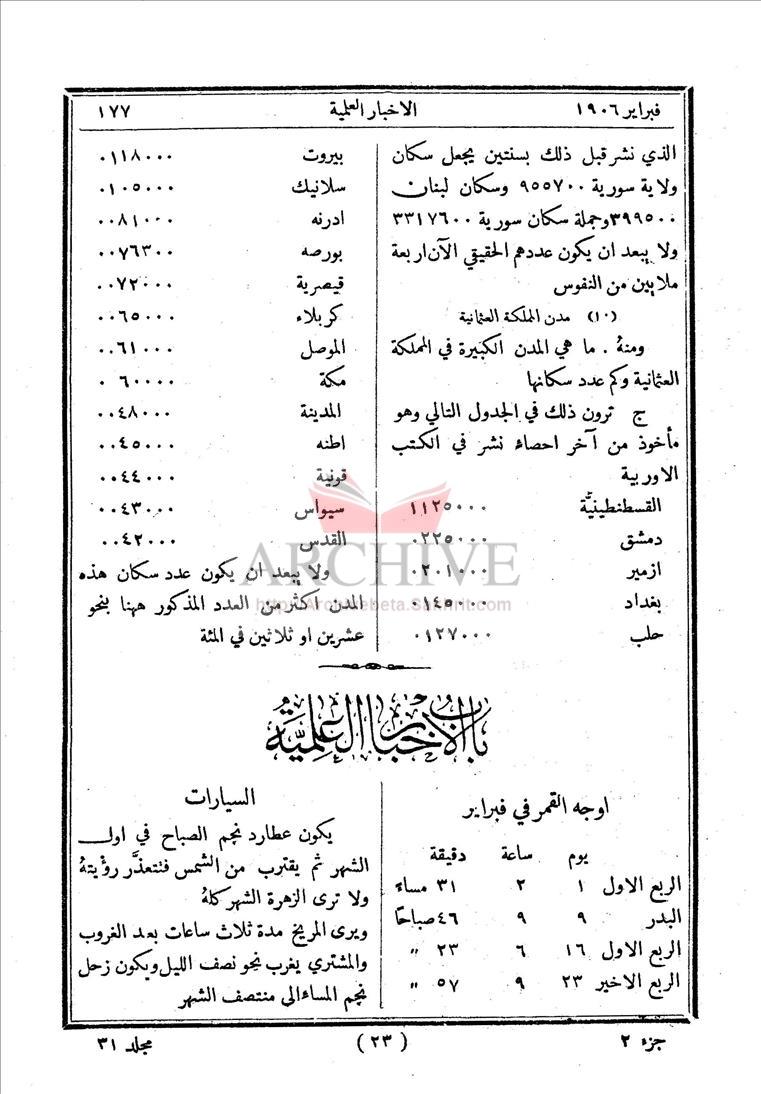 فبراير ١٩٠٦ الاخبار العلمية ١٧٧
الذي نشر قبل ذلك بسنتين يجعل سكان
ولاية سورية ٩٥٥٧٠٠ وسكان لبنان
٣٩٩٥٠٠ وجملة سكان سورية ٣٣١٧٦٠٠
ولا يبعد ان يكون عددهم الحقيقي الآن اربعة
ملايين من النفوس
(١٠) مدن المملكة العثمانية
ومنهُ . ما هي المدن الكبيرة في المملكة
العثمانية وكم عدد سكانها
ج ترون ذلك في الجدول التالي وهو
مأخوذ من آخر احصاء نشر في الكتب
الاوربية
القسطنطينيَّة ١١٢٥٠٠٠
دمشق ٠٢٢٥٠٠٠
ازمير ٠٢٠١٠٠٠
بغداد ٠١٤٥٠٠٠
حلب ٠١٢٧٠٠٠
بيروت ٠١١٨٠٠٠
سلانيك ٠١٠٥٠٠٠
ادرنه ٠٠٨١٠٠٠
بورصه ٠٠٧٦٣٠٠
قيصرية ٠٠٧٢٠٠٠
كربلاء ٠٠٦٥٠٠٠
الموصل ٠٠٦١٠٠٠
مكة ٠ ٦٠٠٠٠
المدينة ٠٠٤٨٠٠٠
اطنه ٠٠٤٥٠٠٠
قونية ٠٠٤٤٠٠٠
سيواس ٠٠٤٣٠٠٠
القدس ٠٠٤٢٠٠٠
ولا يبعد ان يكون عدد سكان هذه
المدن اكثر من العدد المذكور ههنا بنحو
عشرين او ثلاثين في المئة
ARCHIVE
باب الاخبار العلميَّة
اوجه القمر في فبراير
يوم ساعة دقيقة
الربع الاول ١ ٢ ٣١ مساء
البدر ٩ ٩ ٤٦ صباحًا
الربع الاول ١٦ ٦ ٢٣ "
الربع الاخير ٢٣ ٩ ٥٧ "
السيارات
يكون عطارد نجم الصباح في اول
الشهر ثم يقترب من الشمس فتتعذَّر رؤيتهُ
ولا ترى الزهرة الشهر كلهُ
ويرى المريخ مدة ثلاث ساعات بعد الغروب
والمشتري يغرب نحو نصف الليل ويكون زحل
نجم المساء الى منتصف الشهر
جزء ٢ (٢٣) مجلد ٣١